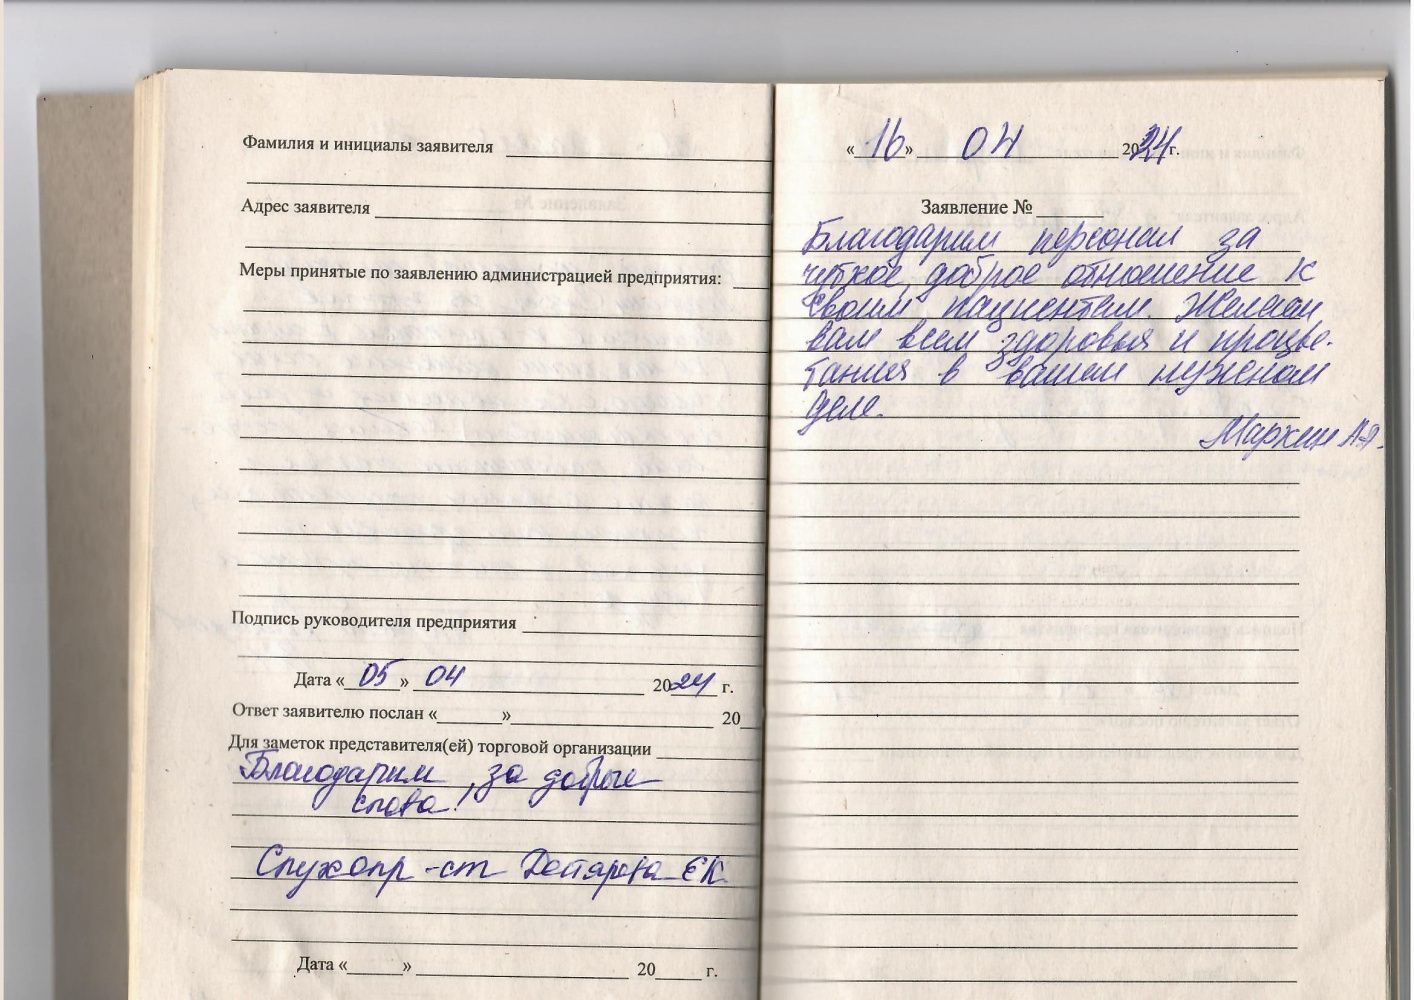 Фамилия и инициалы заявителя
Адрес заявителя
Меры принятые по заявлению администрацией предприятия:
Подпись руководителя предприятия
Дата « 05 » 04 2024 г.
Ответ заявителю послан «      » 20
Для заметок представителя(ей) торговой организации
Благодарим за добрые
слова!
Слухопр-ст Дегтярева ЕК
Дата «      » 20      г.
« 16 » 04 2024 г.
Заявление №
Благодарим персонал за
чуткое, доброе отношение к
своим пациентам. Желаем
вам всем здоровья и процве-
тания в вашем нужном
деле.